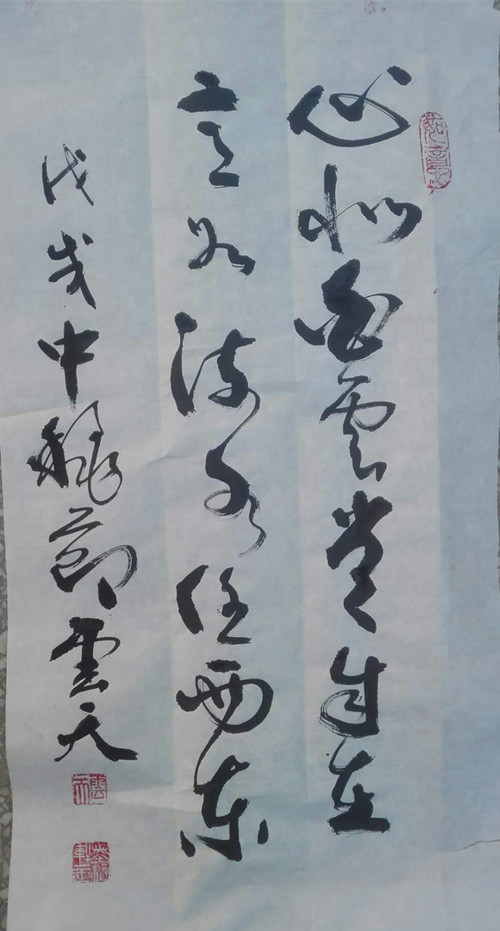 心似白雲常自在
意如流水任西東
戊戌中秋節雲天